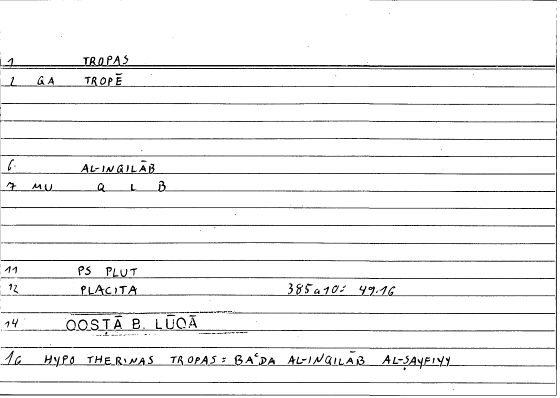 1 TROPAS
2 GA TROPĒ
6. AL-INQILĀB
7 MU Q L B
11 PS PLUT
12 PLACITA 385a10: 49.16
14 QOSṬĀ B. LŪQĀ
16 HYPO THERINAS TROPAS = BAʿDA AL-INQILĀB AL-ṢAYFIYY